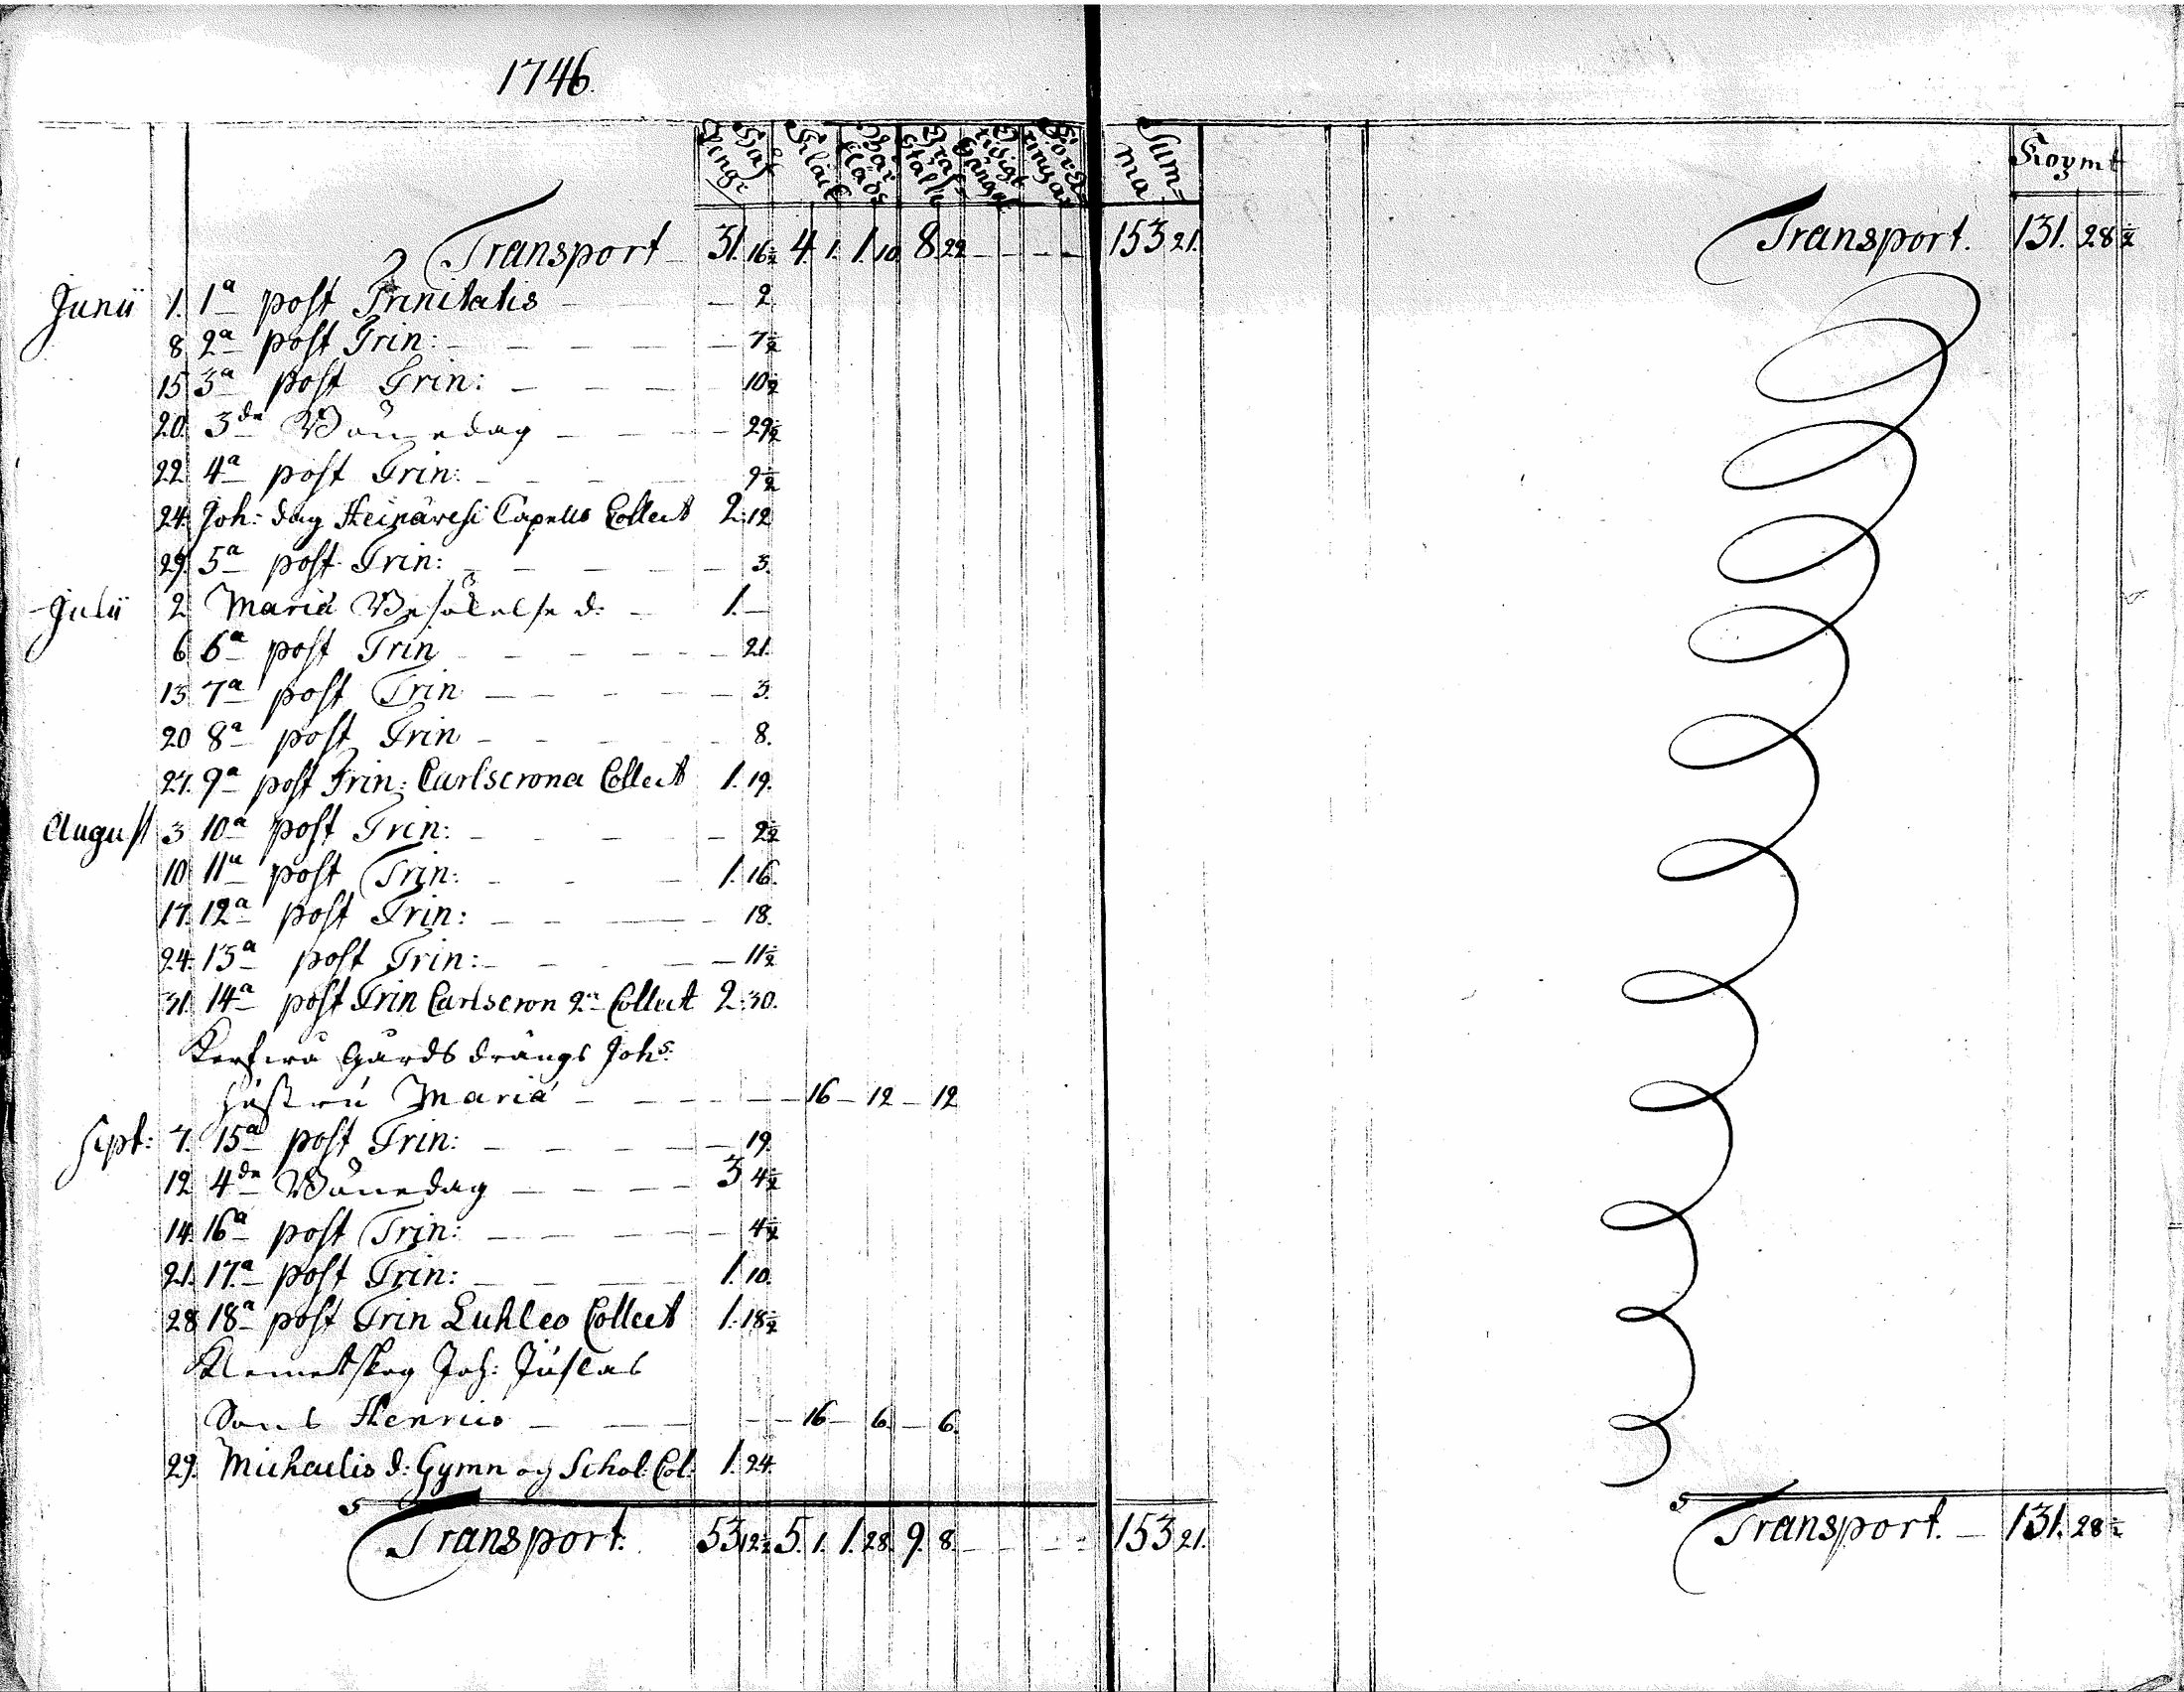 1746.
Håf Pengr Kläck Bår kläds Graf ställe Sum= ma
Transport 31. 16½ 4. 1. 1. 10. 8. 22 - - - - 153 21.
Junii 1. 1a post Trinitatis - - 2.
8 2a post Trin: - - - - - 7½
15 3a post Trin: - - - - 10½
20. 3de Bönedag - - - - 29½
22 4a post Trin: - - - - 9½
24. Joh: dag Heinävesi Capells Collect 2. 12
29. 5a post Trin: - - - - - 3.
Julii 2 Mariæ Besökelse d: - 1. -
6 6a post Trin - - - - - - 21.
13 7a post Trin - - - - - 3.
20 8a post Trin - - - - - 8.
27. 9a post Trin: Carlscrona Collect 1. 19.
August 3 10a post Trin: - - - - 2½
10 11a post Trin: - - - 1. 16.
17. 12a post Trin: - - - - 18.
24. 13a post Trin: - - - - - 11½
31. 14a post Trin Carlscron 2a Collect 2. 30.
gårds drängs Johs:
hustru Maria - - - - - - 16 - 12 - 12
Sept: 7. 15a post Trin: - - - - - 19.
12 4de Bönedag - - - - 3 4½
14. 16a post Trin: - - - - - 4½
21. 17a post Trin: - - - 1. 10.
28 18a post Trin Luhleo Collect 1. 18½
Joh:
Sons Henric - - - - - 16 - 6. - 6.
29. Michaelis d: Gymn och Schol: Col: 1. 24.
Transport. 53 12½ 5. 1. 1. 28. 9. 8. - - - - 153 21.
Transport. 131. 28½
Transport. - 131. 28½